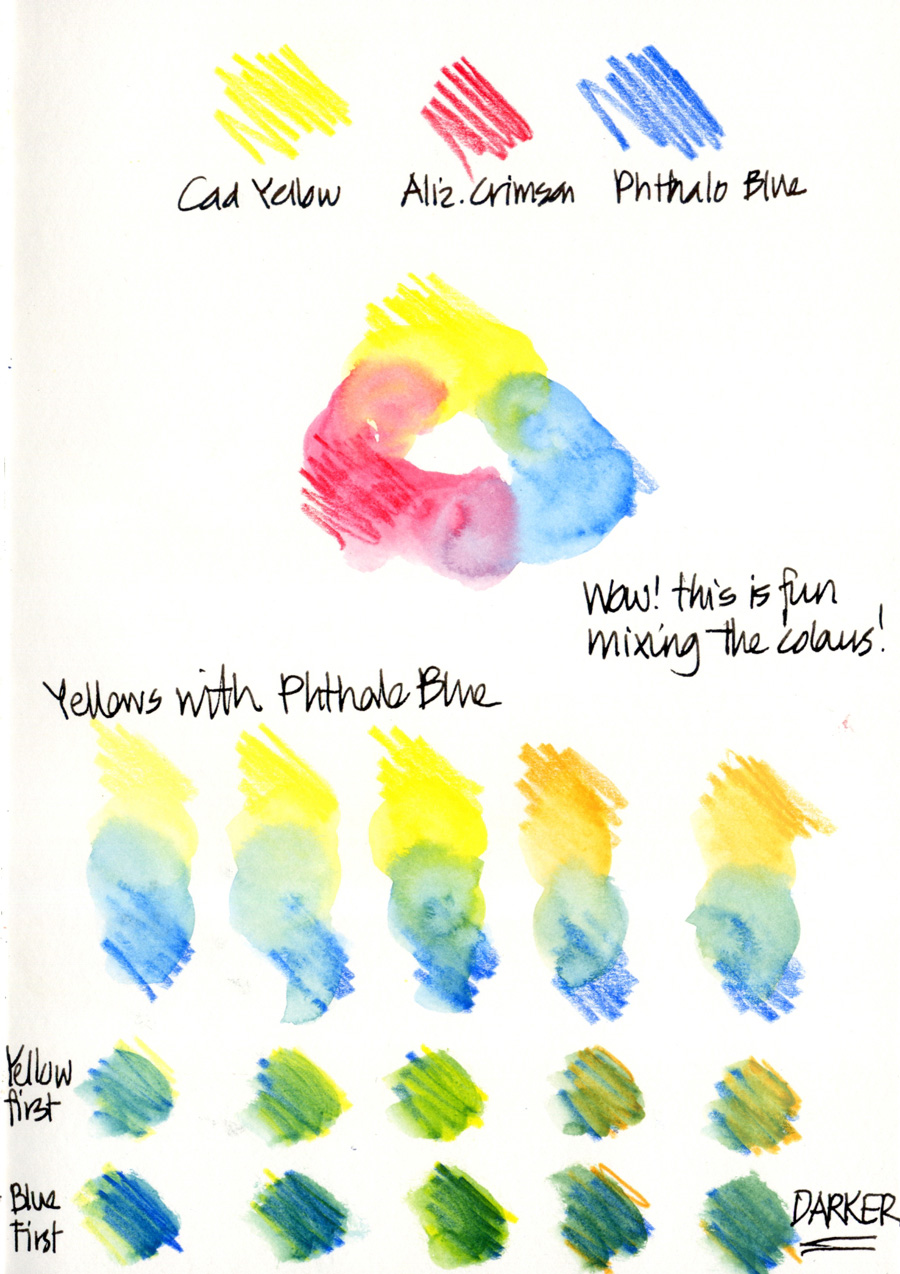 Cad Yellow Aliz. Crimson Phthalo Blue
Wow! this is fun
mixing the colours!
Yellows with Phthalo Blue
Yellow
first
Blue
First
DARKER